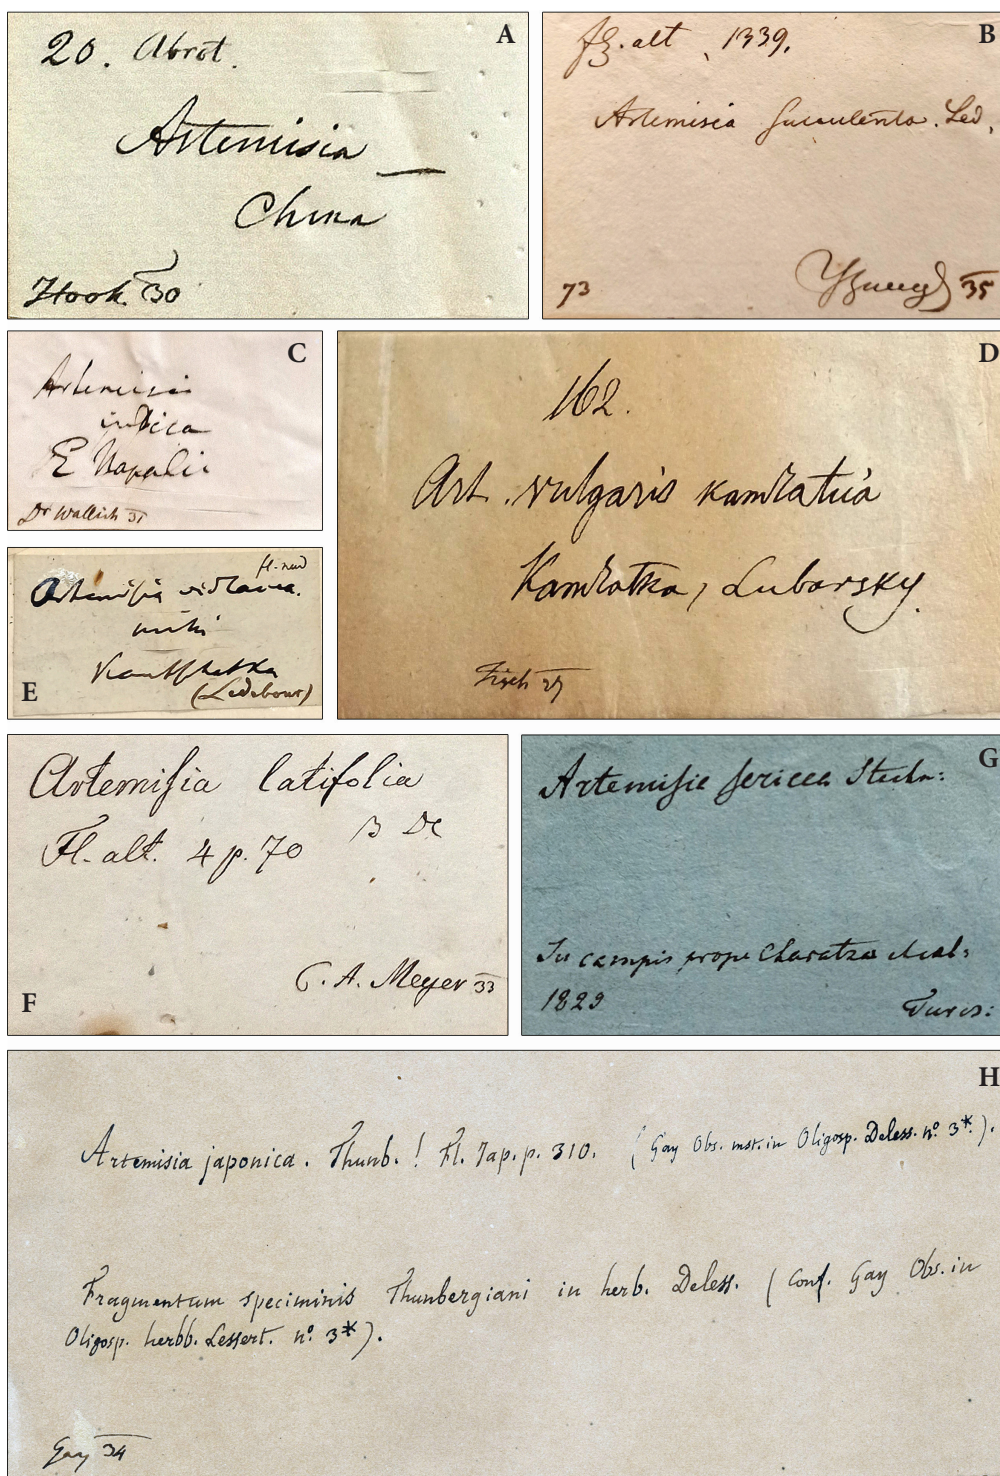 A
20. Abrot.
Artemisia
China
Hook. 30
B
alt 1339.
Artemisia succulenta. Led.
73
Bunge 35
C
Artemisia
indica
E Napalii
Dr Wallich 31
D
162.
Art. vulgaris kamtatica
Kamtatka, Lubarsky
Fisch 27
E
fl. nud
Artemisia
mihi
Kamtschatka
(Ledebour)
F
Artemisia latifolia
Fl. alt. 4 p. 70 β DC
C. A. Meyer 33
G
Artemisia sericea Stechm:
In campis prope Charatza
1829 Turcz:
H
Artemisia japonica. Thunb. ! Fl. Jap. p. 310. (Gay Obs. mst. in Oligosp. Deless. nº 3*.).
Fragmentum speciminis Thunbergiani in herb. Deless. (Conf. Gay Obs. in
Oligosp. herbb. Lessert. nº 3*).
Gay 34